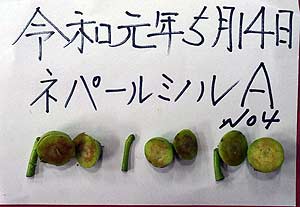 令和元年5月14日
ネパールミノルA
No4